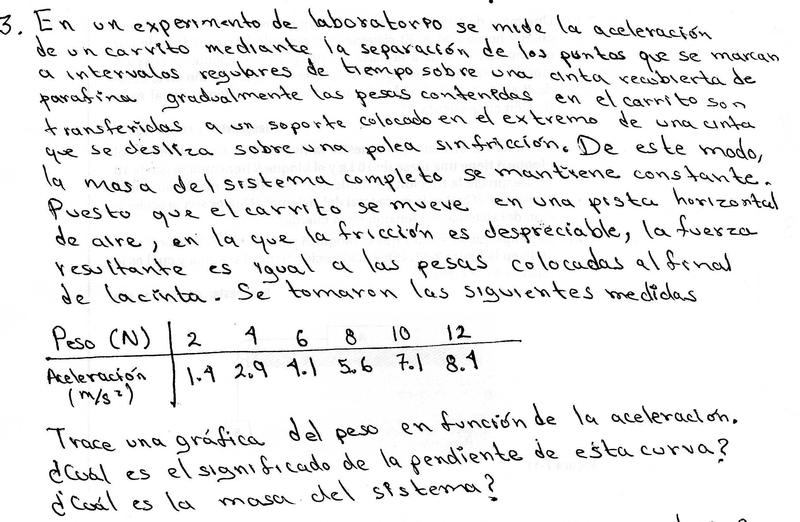 3. En un experimento de laboratorio se mide la aceleración
de un carrito mediante la separación de los puntos que se marcan
a intervalos regulares de tiempo sobre una cinta recubierta de
parafina gradualmente las pesas contenidas en el carrito son
transferidas a un soporte colocado en el extremo de una cinta
que se desliza sobre una polea sin fricción. De este modo,
la masa del sistema completo se mantiene constante.
Puesto que el carrito se mueve en una pista horizontal
de aire, en la que la fricción es despreciable, la fuerza
resultante es igual a las pesas colocadas al final
de la cinta. Se tomaron las siguientes medidas
Peso (N) 2 4 6 8 10 12
Aceleración (m/s²) 1.4 2.9 4.1 5.6 7.1 8.4
Trace una gráfica del peso en función de la aceleración.
¿Cuál es el significado de la pendiente de esta curva?
¿Cuál es la masa del sistema?